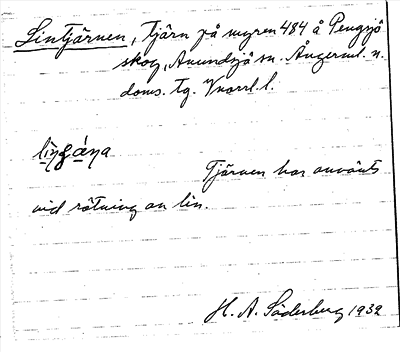 Lintjärnen, Tjärn på myren 484 å Pengsjö
skog, Anundsjö sn. Ångerml. n.
doms. tg. Vnorrl. l.
lìŋgáŋa
Tjärnen har använts
vid rötning av lin.
H. A. Söderberg 1932